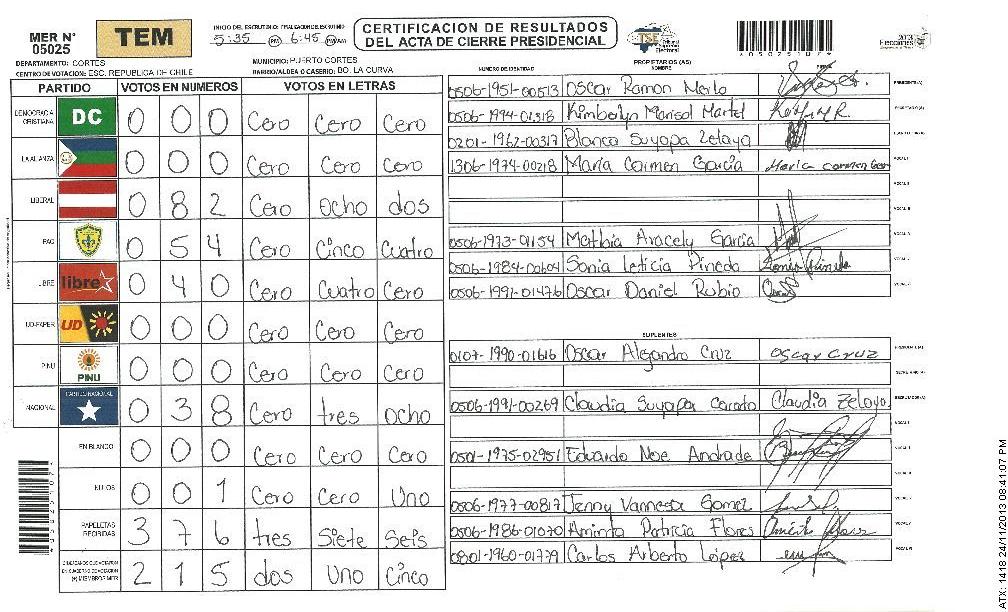 MER N° 05025
TEM
INICIO DEL ESCRUTINIO: FINALIZACION DEL ESCRUTINIO:
5:35 PM 6:45 PM
CERTIFICACION DE RESULTADOS
DEL ACTA DE CIERRE PRESIDENCIAL
TSE Tribunal Supremo Electoral
2013 Elecciones
DEPARTAMENTO: CORTES
MUNICIPIO: PUERTO CORTES
CENTRO DE VOTACION: ESC. REPUBLICA DE CHILE
BARRIO/ALDEA O CASERIO: BO. LA CURVA
PARTIDO VOTOS EN NUMEROS VOTOS EN LETRAS
DEMOCRACIA CRISTIANA DC 0 0 0 Cero Cero Cero
LA ALIANZA 0 0 0 Cero Cero Cero
LIBERAL 0 8 2 Cero ocho dos
PAC 0 5 4 Cero Cinco Cuatro
LIBRE libre 0 4 0 Cero Cuatro Cero
UD-FAPER UD 0 0 0 Cero Cero Cero
PINU PINU 0 0 0 Cero Cero Cero
NACIONAL PARTIDO NACIONAL 0 3 8 Cero tres ocho
EN BLANCO 0 0 0 Cero Cero Cero
NULOS 0 0 1 Cero Cero Uno
PAPELETAS RECIBIDAS 3 7 6 tres Siete Seis
2 1 5 dos Uno Cinco
NUMERO DE IDENTIDAD PROPIETARIOS (AS) NOMBRE FIRMA
0506-1951-00513 Oscar Ramon Merlo PRESIDENTE(A)
0506-1994-01318 Kimberlyn Marisol Martel SECRETARIO(A)
0201-1962-00317 Blanca Suyapa Zelaya
1306-1974-00218 Maria Carmen Garcia Maria Carmen Gar VOCAL I
VOCAL II
VOCAL III
0506-1973-01154 Mathia Aracely Garcia
0506-1984-00604 Sonia Leticia Pineda Sonia Pineda
0506-1991-01476 Oscar Daniel Rubio
SUPLENTES
0107-1990-01616 Oscar Alejandro Cruz oscar cruz PRESIDENTE(A)
SECRETARIO(A)
0506-1991-00269 Claudia Suyapa Claudia Zelaya ESCRUTADOR(A)
0501-1975-02951 Eduardo Noe Andrade
0506-1977-00817 Jenny Vannesa Gomez
0506-1986-01070 Aminta Patricia Flores
0801-1960-01779 Carlos Arberto López
ATX: 1418 24/11/2013 08:41:07 PM